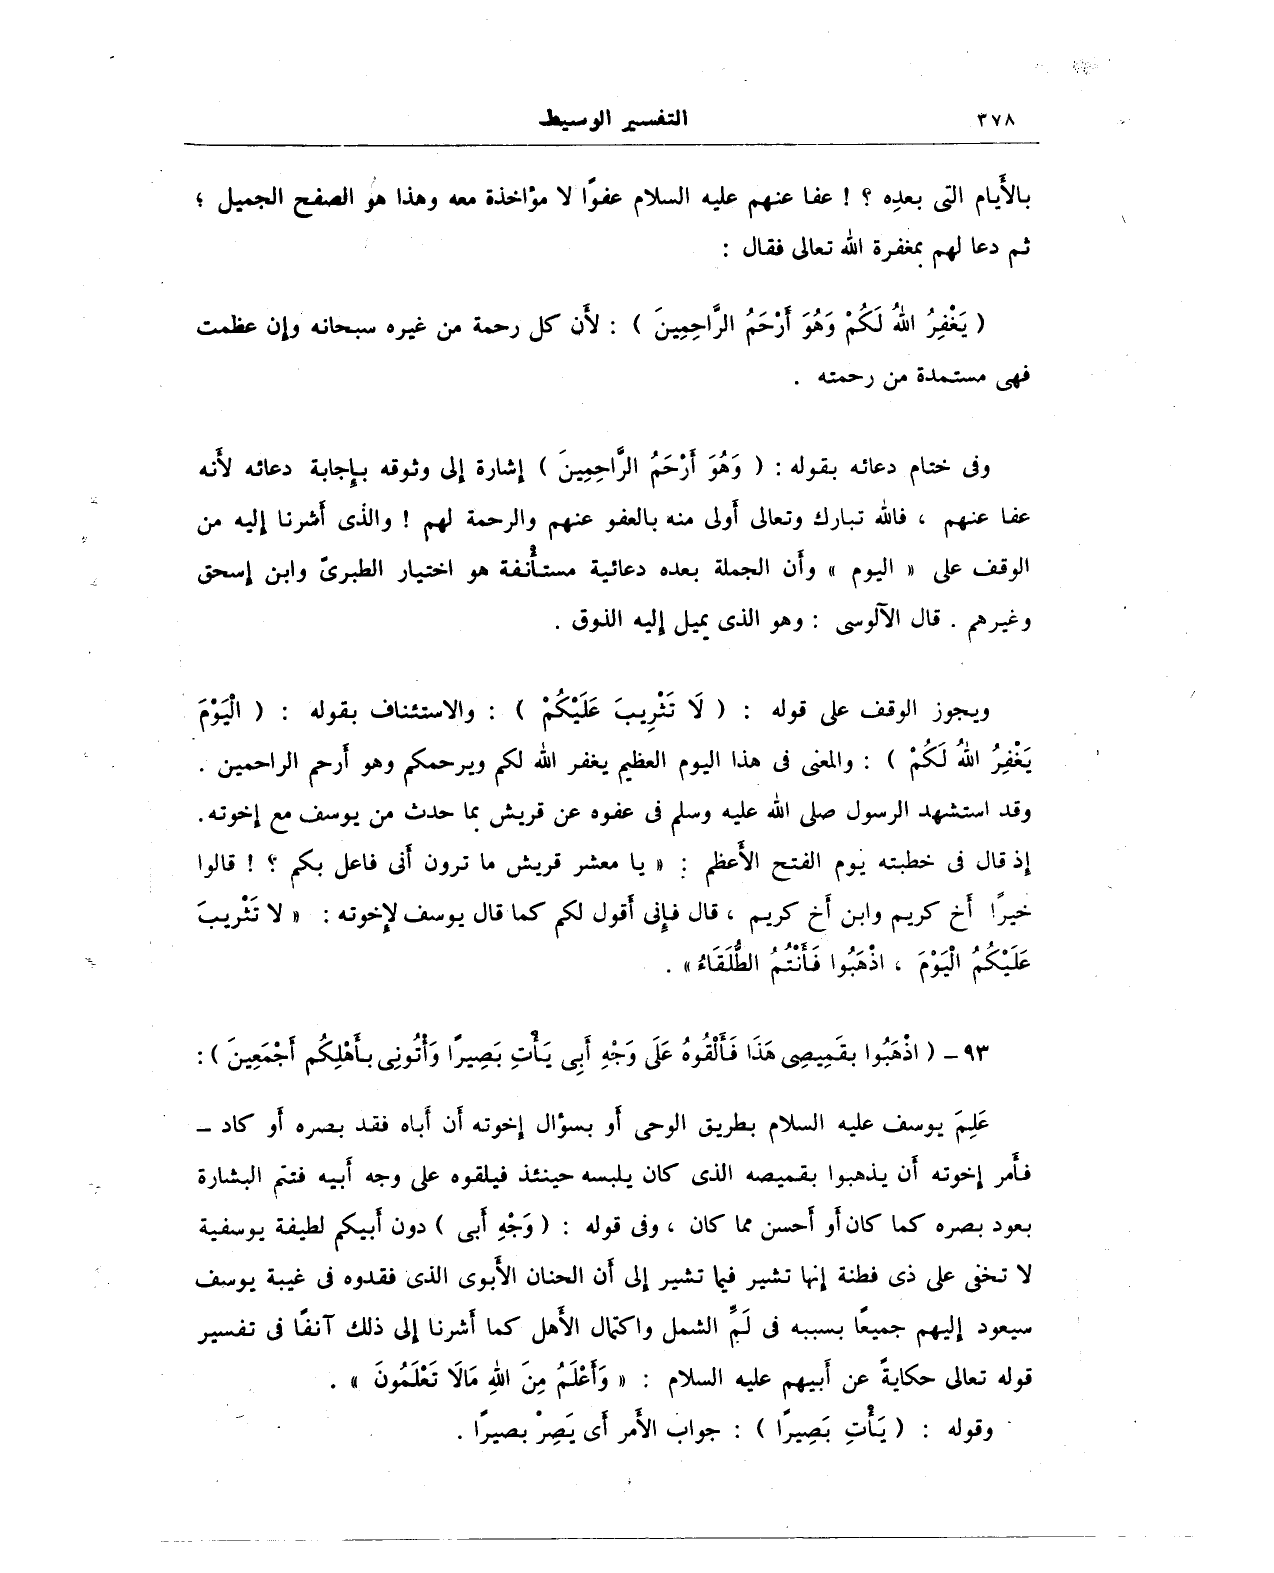 ٣٧٨
التفسير الوسيط
بالأَيام التى بعدِه ؟ ! عفا عنهم عليه السلام عفوًا لا مؤاخذة معه وهذا هو الصفح الجميل ؛
ثم دعا لهم بمغفرة الله تعالى فقال :
( يَغْفِرُ اللهُ لَكُمْ وَهُوَ أَرْحَمُ الرَّاحِمِينَ ) : لأَن كل رحمة من غيره سبحانه وإن عظمت
فهى مستمدة من رحمته .
وفى ختام دعائه بقوله : ( وَهُوَ أَرْحَمُ الرَّاحِمِينَ ) إشارة إلى وثوقه بإجابة دعائه لأَنه
عفا عنهم ، فالله تبارك وتعالى أَولى منه بالعفو عنهم والرحمة لهم ! والذى أَشرنا إليه من
الوقف على « اليوم » وأَن الجملة بعده دعائية مستأْنفة هو اختيار الطبرىّ وابن إسحق
وغيرهم . قال الآلوسى : وهو الذى يميل إليه الذوق .
ويجوز الوقف على قوله : ( لَا تَثْرِيبَ عَلَيْكُمْ ) : والاستئناف بقوله : ( الْيَوْمَ
يَغْفِرُ اللهُ لَكُمْ ) : والمعنى فى هذا اليوم العظيم يغفر الله لكم ويرحمكم وهو أرحم الراحمين .
وقد استشهد الرسول صلى الله عليه وسلم فى عفوه عن قريش بما حدث من يوسف مع إخوته.
إذ قال فى خطبته يوم الفتح الأَعظم : « يا معشر قريش ما ترون أَنى فاعل بكم ؟ ! قالوا
خيرًا أَخ كريم وابن أَخ كريم ، قال فإنى أَقول لكم كما قال يوسف لإخوته : « لا تَثْرِيبَ
عَلَيْكُمُ الْيَوْمَ ، اذْهَبُوا فَأَنْتُمُ الطُّلَقَاءُ» .
٩٣ - ( اذْهَبُوا بِقَمِيصِى هَذَا فَأَلْقُوهُ عَلَى وَجْهِ أَبِى يَأْتِ بَصِيرًا وَأْتُونِى بِأَهْلِكُم أَجْمَعِينَ ) :
عَلِمَ يوسف عليه السلام بطريق الوحى أَو بسؤال إخوته أَن أَباه فقد بصره أَو كاد -
فأَمر إخوته أَن يذهبوا بقميصه الذى كان يلبسه حينئذ فيلقوه على وجه أَبيه فتتم البشارة
بعود بصره كما كان أَو أَحسن مما كان ، وفى قوله : ( وَجْهِ أَبى ) دون أَبيكم لطيفة يوسفية
لا تخفى على ذى فطنة إنها تشير فيما تشير إلى أَن الحنان الأَبوى الذى فقدوه فى غيبة يوسف
سيعود إليهم جميعًا بسببه فى لَمِّ الشمل واكتمال الأَهل كما أَشرنا إلى ذلك آنفًا فى تفسير
قوله تعالى حكايةً عن أَبيهم عليه السلام : « وَأَعْلَمُ مِنَ اللهِ مَالَا تَعْلَمُونَ » .
وقوله : ( يَأْتِ بَصِيرًا ) : جواب الأَمر أَى يَصِرْ بصيرًا .